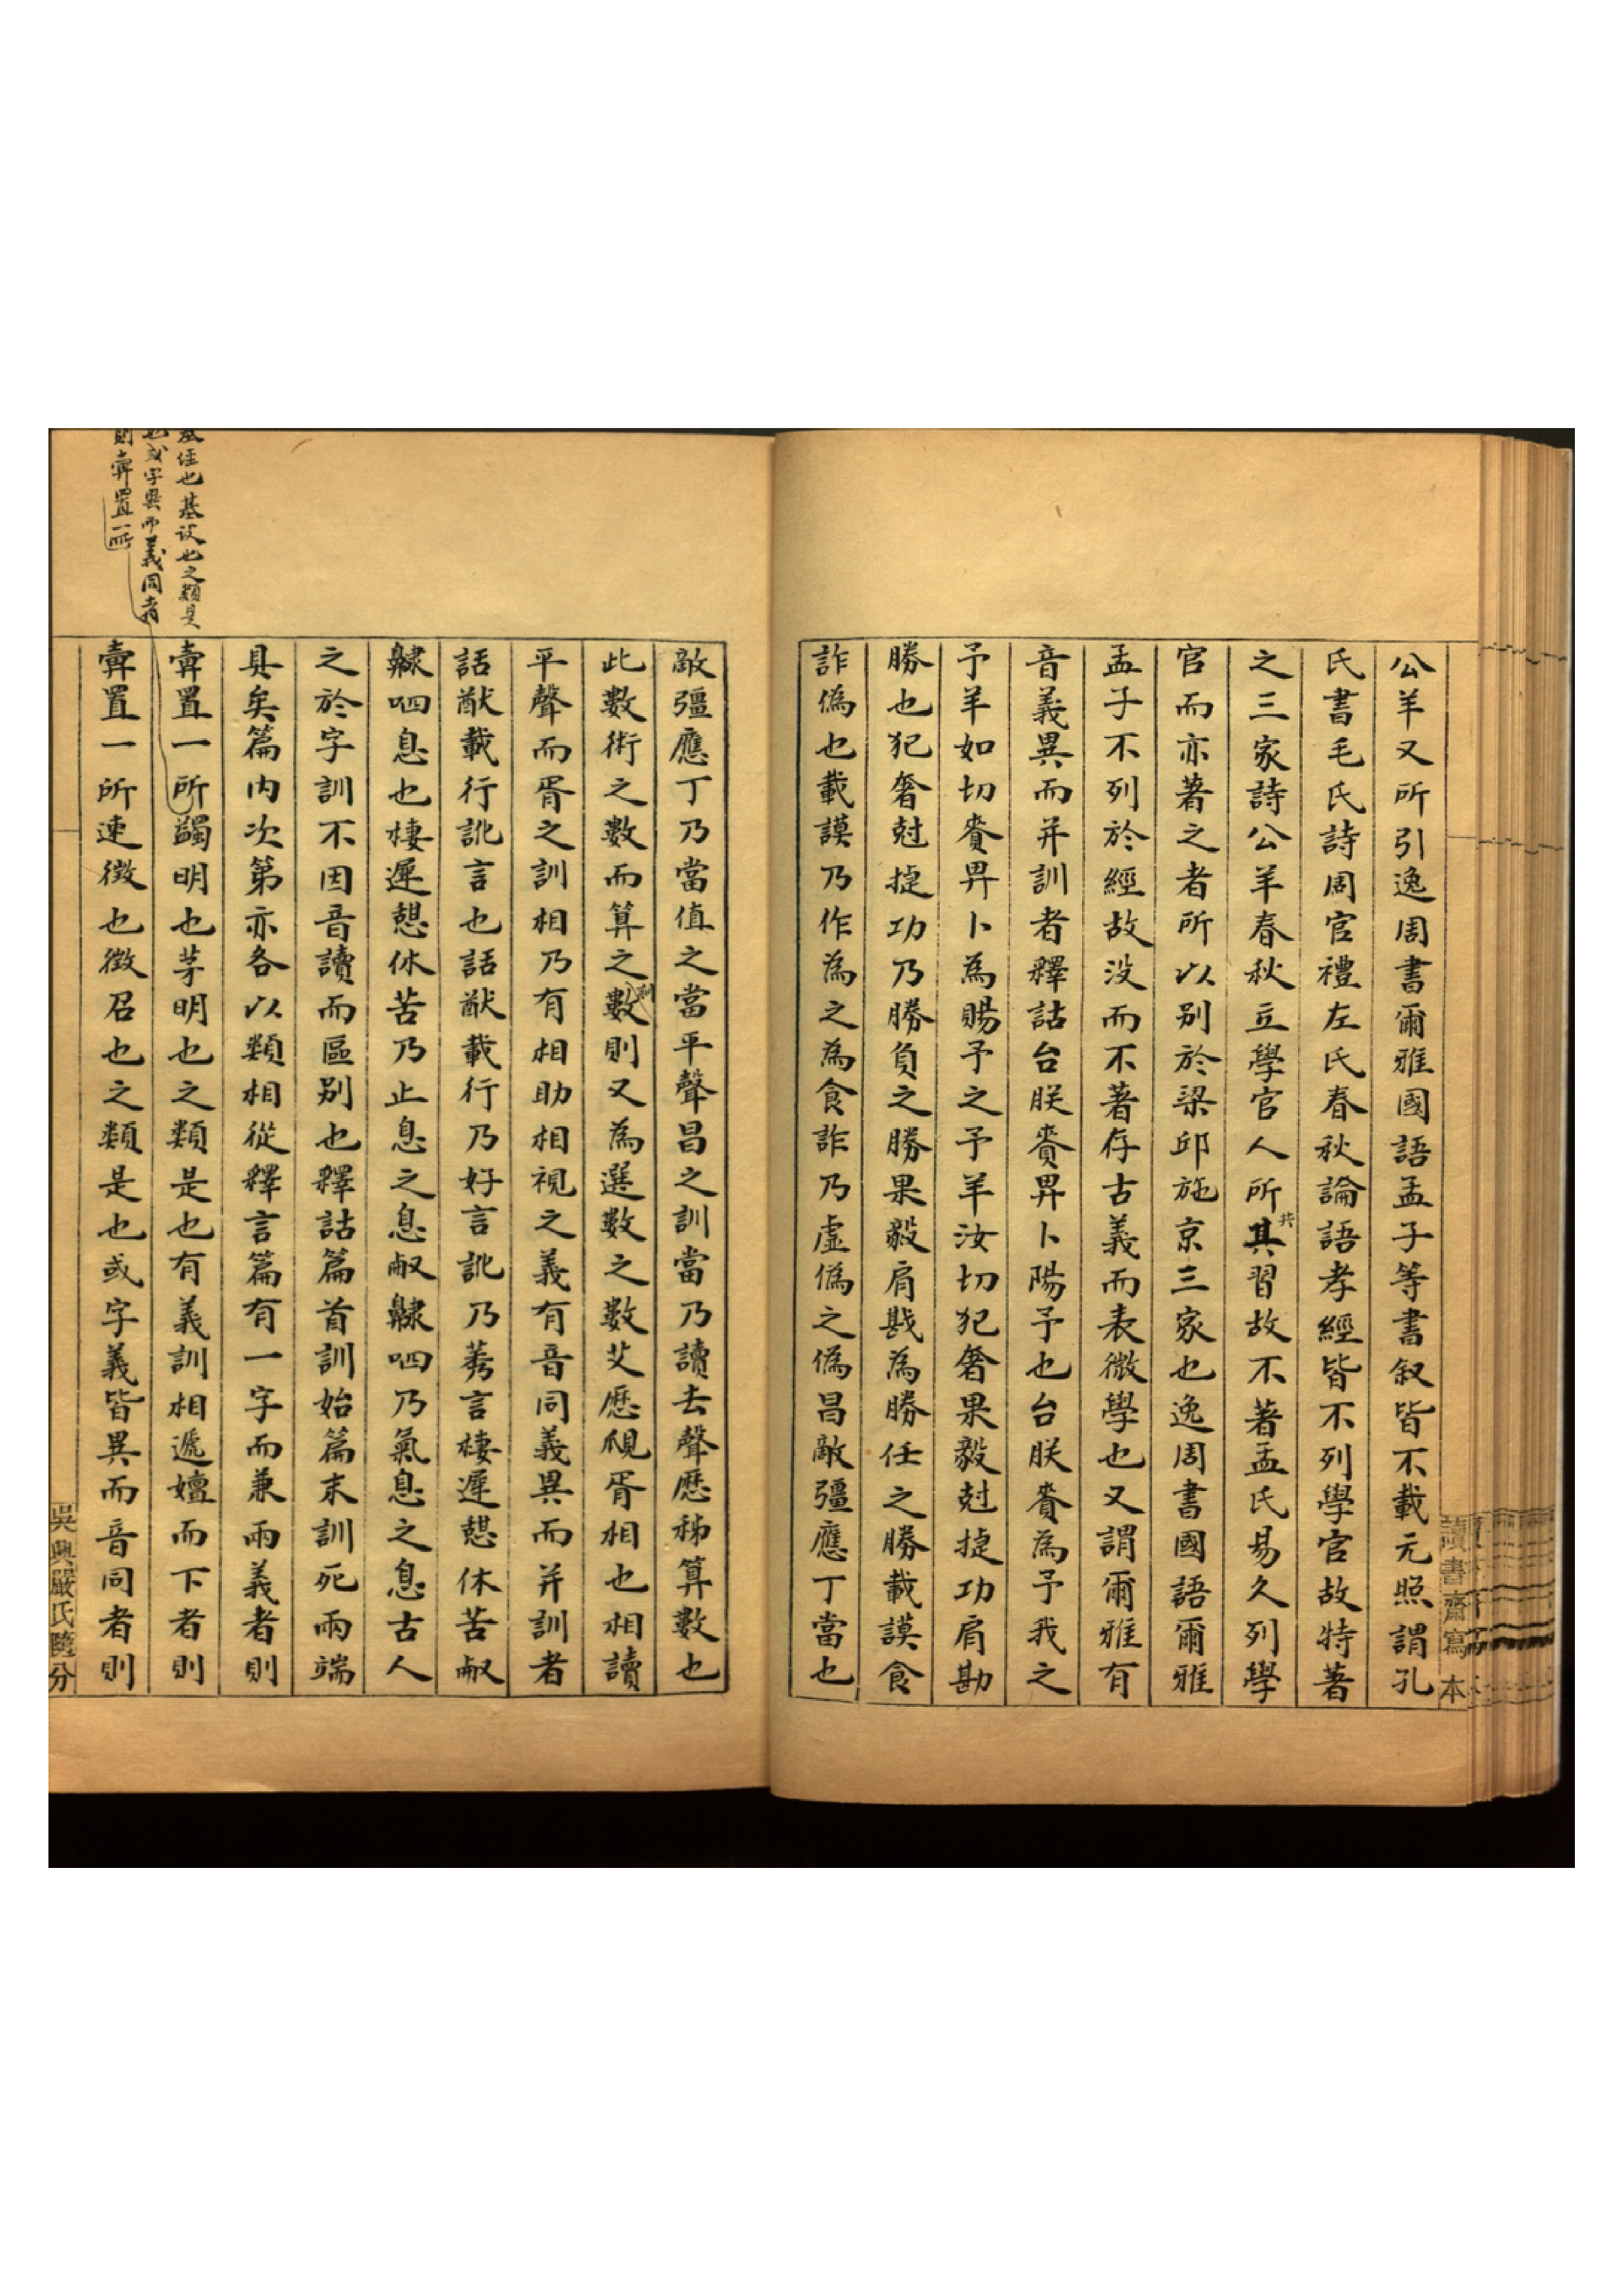 公羊又所引逸周書爾雅國語孟子等書叙皆不載元照謂孔
氏書毛氏詩周官禮左氏春秋論語孝經皆不列學官故特著
之三家詩公羊春秋立學官人所其習故不著孟氏易久列學
共
官而亦著之者所以别於梁邱施京三家也逸周書國語爾雅
孟子不列於經故没而不著存古義而表微學也又謂爾雅有
音義異而并訓者釋詁台朕賚畀卜陽予也台朕賚為予我之
予羊如切賚畀卜為賜予之予羊汝切犯奢果毅尅捷功肩勘
勝也犯奢尅捷功乃勝負之勝果毅肩戡為勝任之勝載謨食
詐偽也載謨乃作為之為食詐乃虛偽之偽昌敵彊應丁當也
敵彊應丁乃當值之當平聲昌之訓當乃讀去聲歷秭算數也
此數術之數而算之數則又為選數之數艾歷覛胥相也相讀
平聲而胥之訓相乃有相助相視之義有音同義異而并訓者
話猷載行訛言也話猷載行乃好言訛乃莠言棲遲憩休苦㕞
齂呬息也棲遲憩休苦乃止息之息㕞齂呬乃氣息之息古人
之於字訓不因音讀而區别也釋詁篇首訓始篇末訓死兩端
具矣篇内次第亦各以類相從釋言篇有一字而兼兩義者則
彙置一所蠲明也茅明也之類是也有義訓相遞嬗而下者則
彙置一所速徵也徵召也之類是也或字義皆異而音同者則
經也基設也之類是
也或字異而義同者
則彙置一所
讀書齋寫本
吳興嚴氏隨分